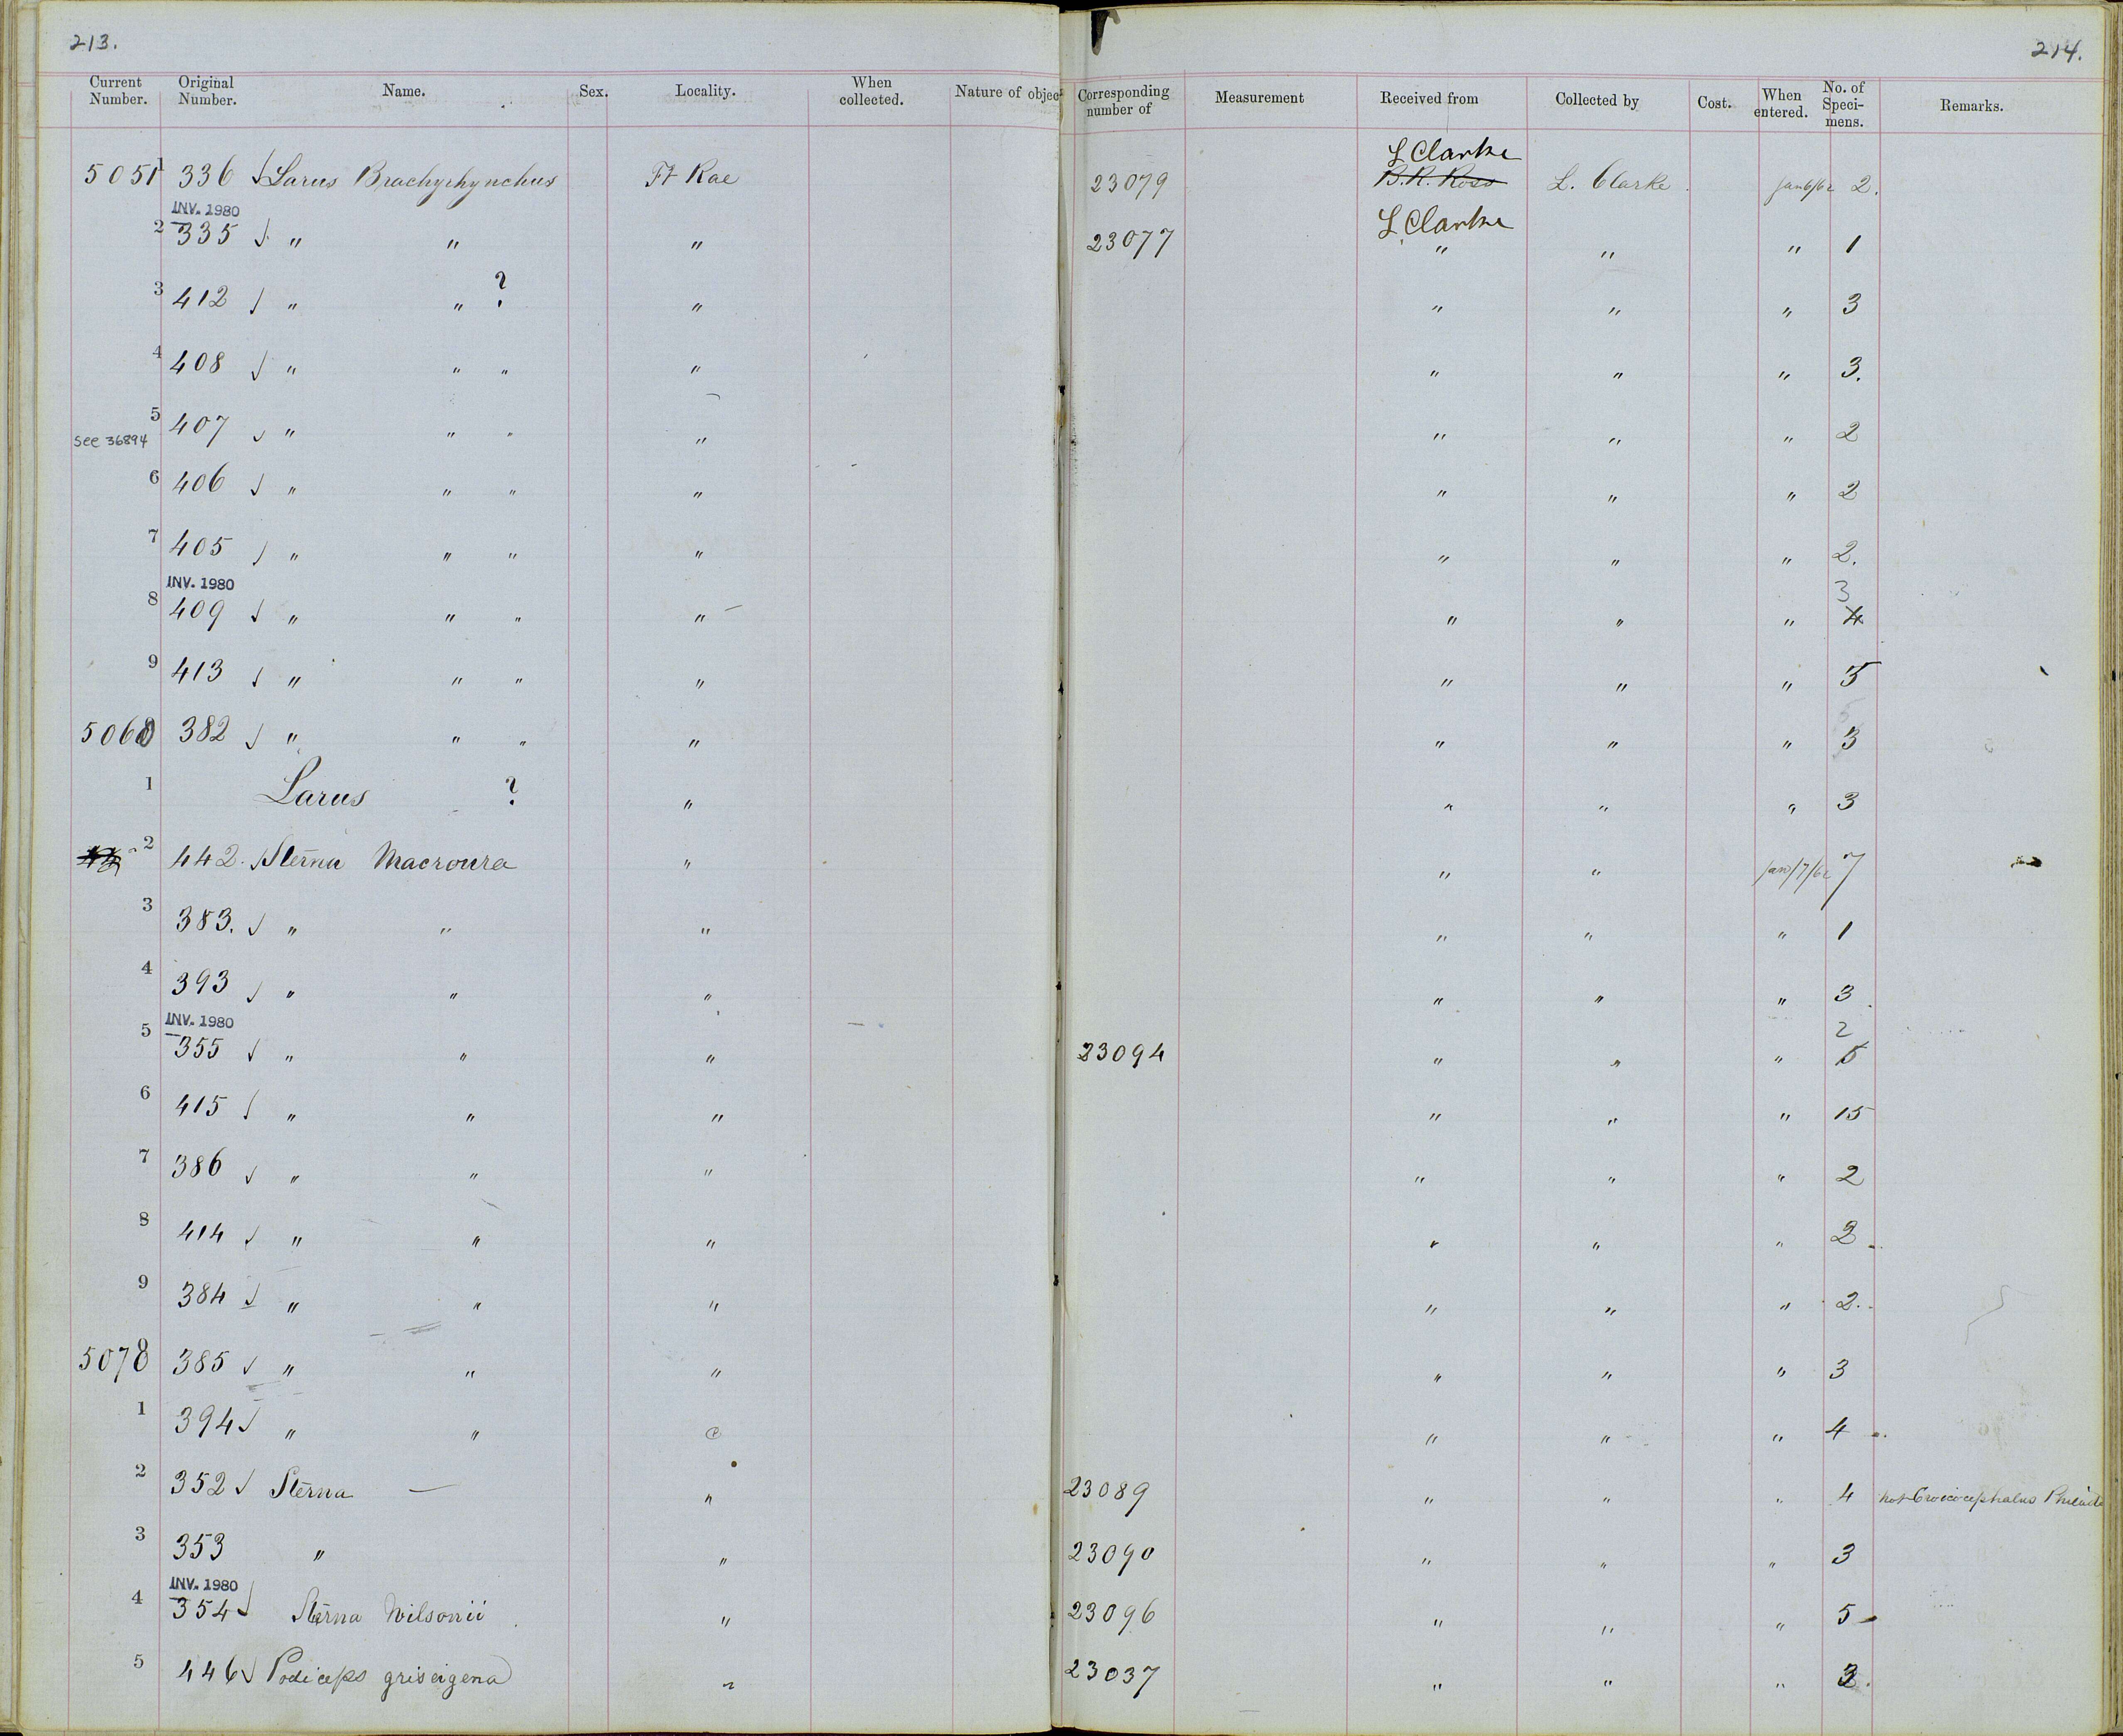 213. 214.
Current Number. Original Number. Name. Sex. Locality. When collected. Nature of objec Corresponding number of Measurement Received from Collected by Cost. When entered. No. of Speci-mens. Remarks.
L Clarke
5051 336 √ Larus Brachyrhynchus Ft Rae 23079 B.R. Ross L. Clarke Jan 6/62 2.
INV. 1980 L Clarke
2 335 √ " " " 23077 " " " 1
3 412 √ " " ? " " " " 3
4 408 √ " " " " " " " 3.
5 407 √ " " " " " " " 2
see 36894
6 406 √ " " " " " " " 2
7 405 √ " " " " " " " 2.
INV. 1980 3
8 409 √ " " " " " " " 4
9 413 √ " " " " " " " 5
5060 382 √ " " " " " " " 3
1 Larus ? " " " " 3
2 442. √ Sterna Macroura " " " Jan/7/62 7
3 383. √ " " " " " " 1
4 393 √ " " " " " " 3
INV. 1980 2
5 355 √ " " " 23094 " " " 5
6 415 √ " " " " " " 15
7 386 √ " " " " " " 2
8 414 √ " " " " " " 2
9 384 √ " " " " " " 2.
5070 385 √ " " " " " " 3
1 394 √ " " " " " 4
2 352 √ Sterna — " 23089 " " " 4 not Croicocephalus Philad
3 353 " " 23090 " " " 3
INV. 1980
4 354 √ Sterna Wilsonii " 23096 " " " 5
5 446 √ Podiceps griseigena " 23037 " " " 3.